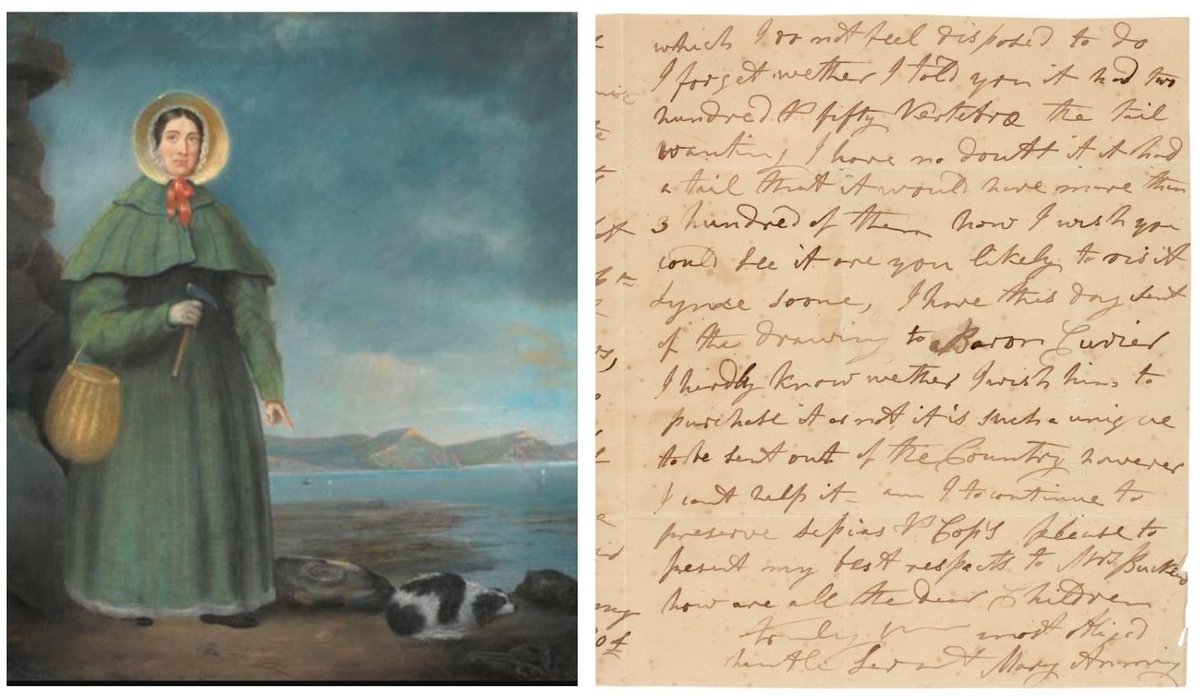 which I do not feel disposed to do
I forget wether I told you it had two
hundred & fifty Vertebræ the tail
wanting I have no doubt if it had
a tail that it would have more than
3 hundred of them how I wish you
could see it are you likely to visit
Lyme soone, I have this day sent
of the drawing to Baron Cuvier
I hardly know wether I wish him to
purchase it or not it is such a unique
to be sent out of the Country however
I cant help it - am I to continue to
preserve sepias & Cop's please to
present my best respects to Mrs Buckland
how are all the dear Children
truly your most obliged
humble Servant Mary Anning